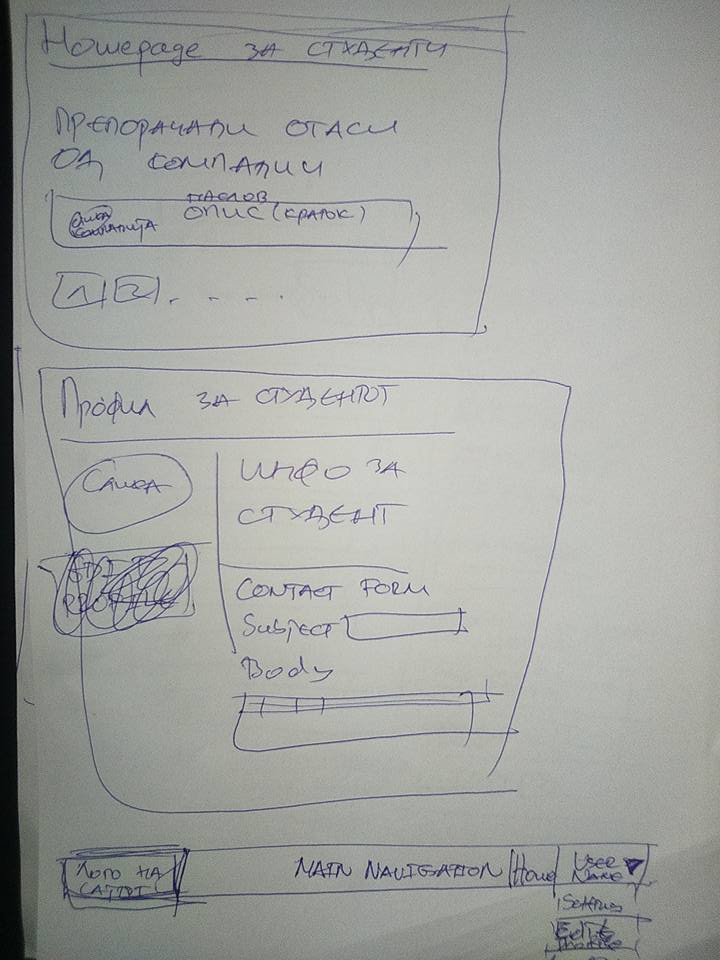 Homepage ЗА СТУДЕНТИ
ПРЕПОРАЧАНИ ОГЛАСИ
ОД КОМПАНИИ
НАСЛОВ
СЛИКА
КОМПАНИЈА
ОПИС (КРАТОК)
1 2 . - - .
Профил ЗА СТУДЕНТОТ
Слика
ИНФО ЗА
СТУДЕНТ
EDIT
PROFILE
CONTACT FORM
Subject
Body
ЛОГО НА
САЈТОТ
MAIN NAVIGATION
Home
USER
NAME
Settings
Edit
Profile